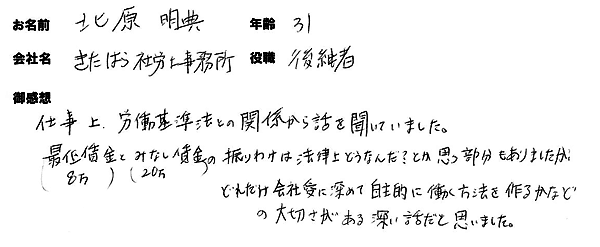 お名前 北原 明典 年齢 31
会社名 きたはら社労士事務所 役職 後継者
御感想
仕事上、労働基準法との関係から話を聞いていました。
最低賃金とみなし賃金の振りわけは法律上どうなんだ?とか思う部分もありましたが、
(8万) (20万)
どれだけ会社愛に深めて自主的に働く方法を作るかなど
の大切さがある深い話だと思いました。